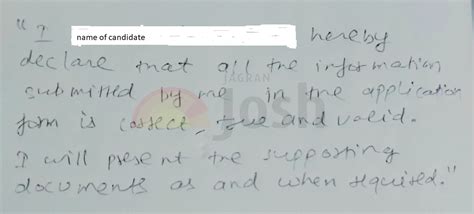 "I name of candidate hereby
declare that all the information
submitted by me in the application
form is correct, true and valid.
I will present the supporting
documents as and when required."
JAGRAN
Josh